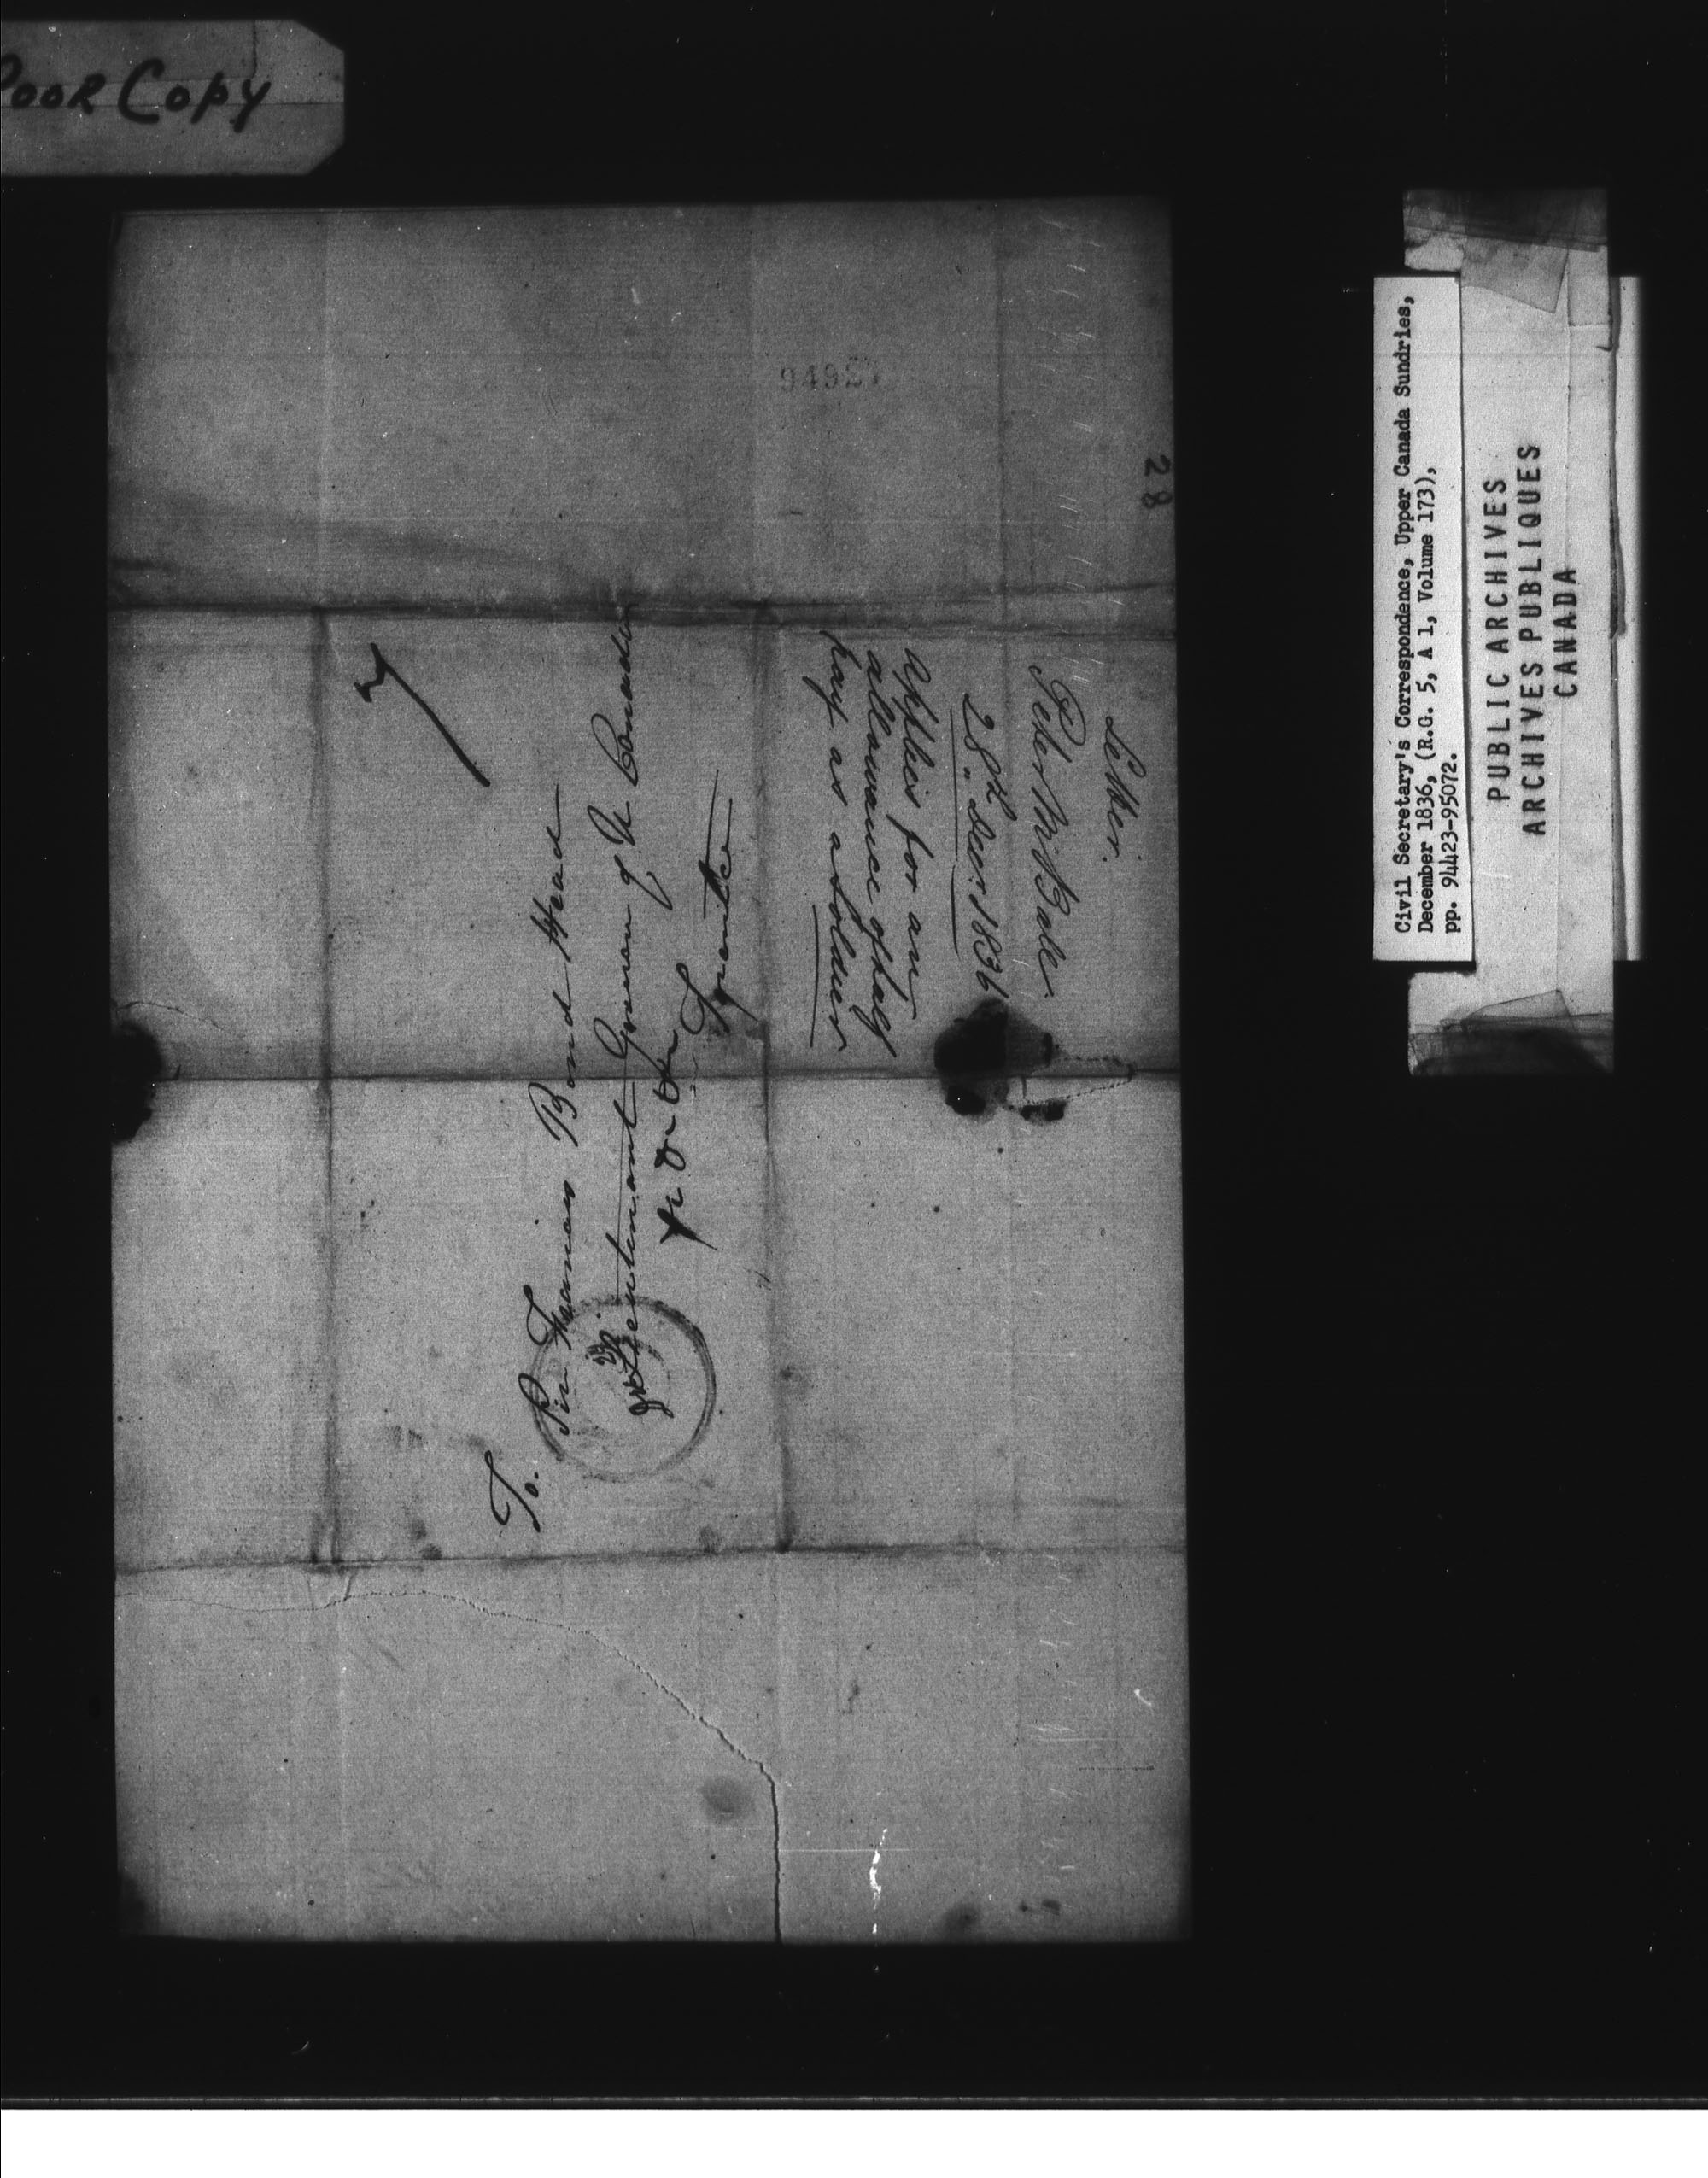 POOR COPY
94927
28
Letter.
Peter McCale.
28th Decr 1836
Applies for an
allowance of half
pay as a Soldier
To.
Sir Francis Bond Head
Lieutenant Governor of U Canada
&c &c &c
Toronto
7
Civil Secretary's Correspondence, Upper Canada Sundries,
December 1836, (R.G. 5, A 1, Volume 173),
pp. 94423-95072.
PUBLIC ARCHIVES
ARCHIVES PUBLIQUES
CANADA